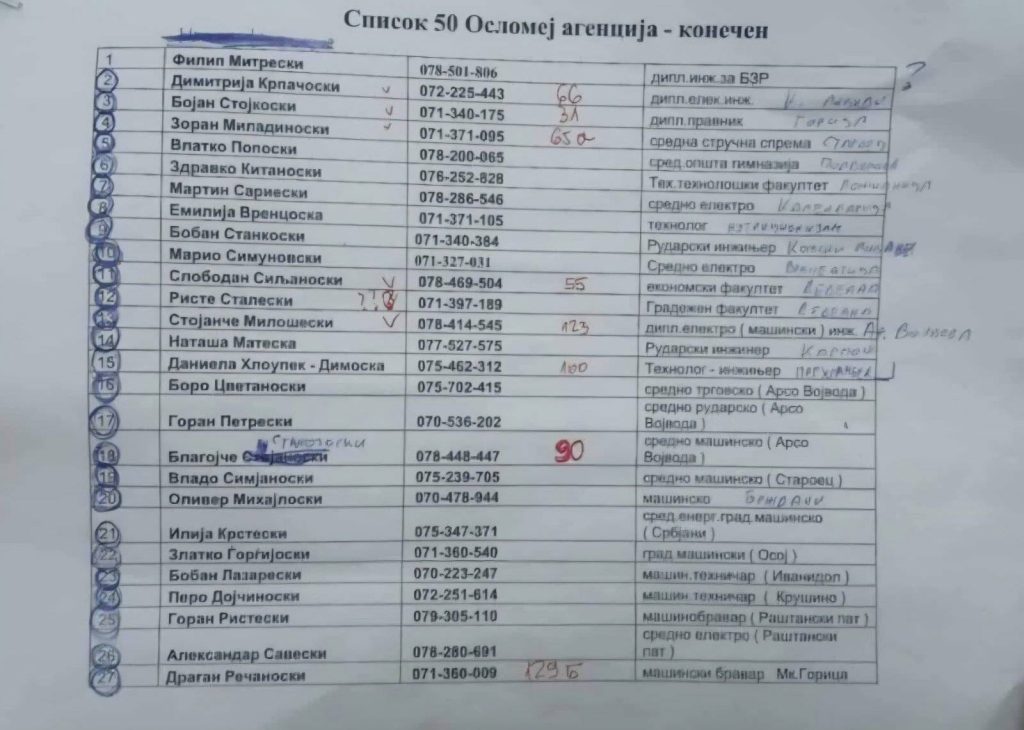 Список 50 Осломеј агенција - конечен
1 Филип Митрески 078-501-806 дипл.инж.за БЗР ?
2 Димитрија Крпачоски 072-225-443 66 дипл.елек.инж.
3 Бојан Стојкоски 071-340-175 31 дипл.правник
4 Зоран Миладиноски 071-371-095 65а средна стручна спрема
5 Влатко Попоски 078-200-065 сред.општа гимназија
6 Здравко Китаноски 076-252-828 Тех.технолошки факултет
7 Мартин Сариески 078-286-546 средно електро
8 Емилија Вренцоска 071-371-105 технолог
9 Бобан Станкоски 071-340-384 Рударски инжињер
10 Марио Симуновски 071-327-031 Средно електро
11 Слободан Сиљаноски 078-469-504 55 економски факултет
12 Ристе Сталески ?? 071-397-189 Градежен факултет
13 Стојанче Милошески 078-414-545 123 дипл.електро ( машински ) инж.
14 Наташа Матеска 077-527-575 Рударски инжинер
15 Даниела Хлоупек - Димоска 075-462-312 100 Технолог - инжињер
16 Боро Цветаноски 075-702-415 средно трговско ( Арсо Војвода )
17 Горан Петрески 070-536-202 средно рударско ( Арсо
Војвода )
18 Благојче 078-448-447 90 средно машинско ( Арсо
Војвода )
19 Владо Симјаноски 075-239-705 средно машинско ( Староец )
20 Оливер Михајлоски 070-478-944 машинско
21 Илија Крстески 075-347-371 сред.енерг.град.машинско
( Србјани )
22 Златко Ѓорѓијоски 071-360-540 град машински ( Осој )
23 Бобан Лазарески 070-223-247 машин.техничар ( Иванидол )
24 Перо Дојчиноски 072-251-614 машин техничар ( Крушино )
25 Горан Ристески 079-305-110 машинобравар ( Раштански пат )
26 Александар Савески 078-280-691 средно електро ( Раштански
пат )
27 Драган Речаноски 071-360-009 129 Б машински бравар Мк.Горица